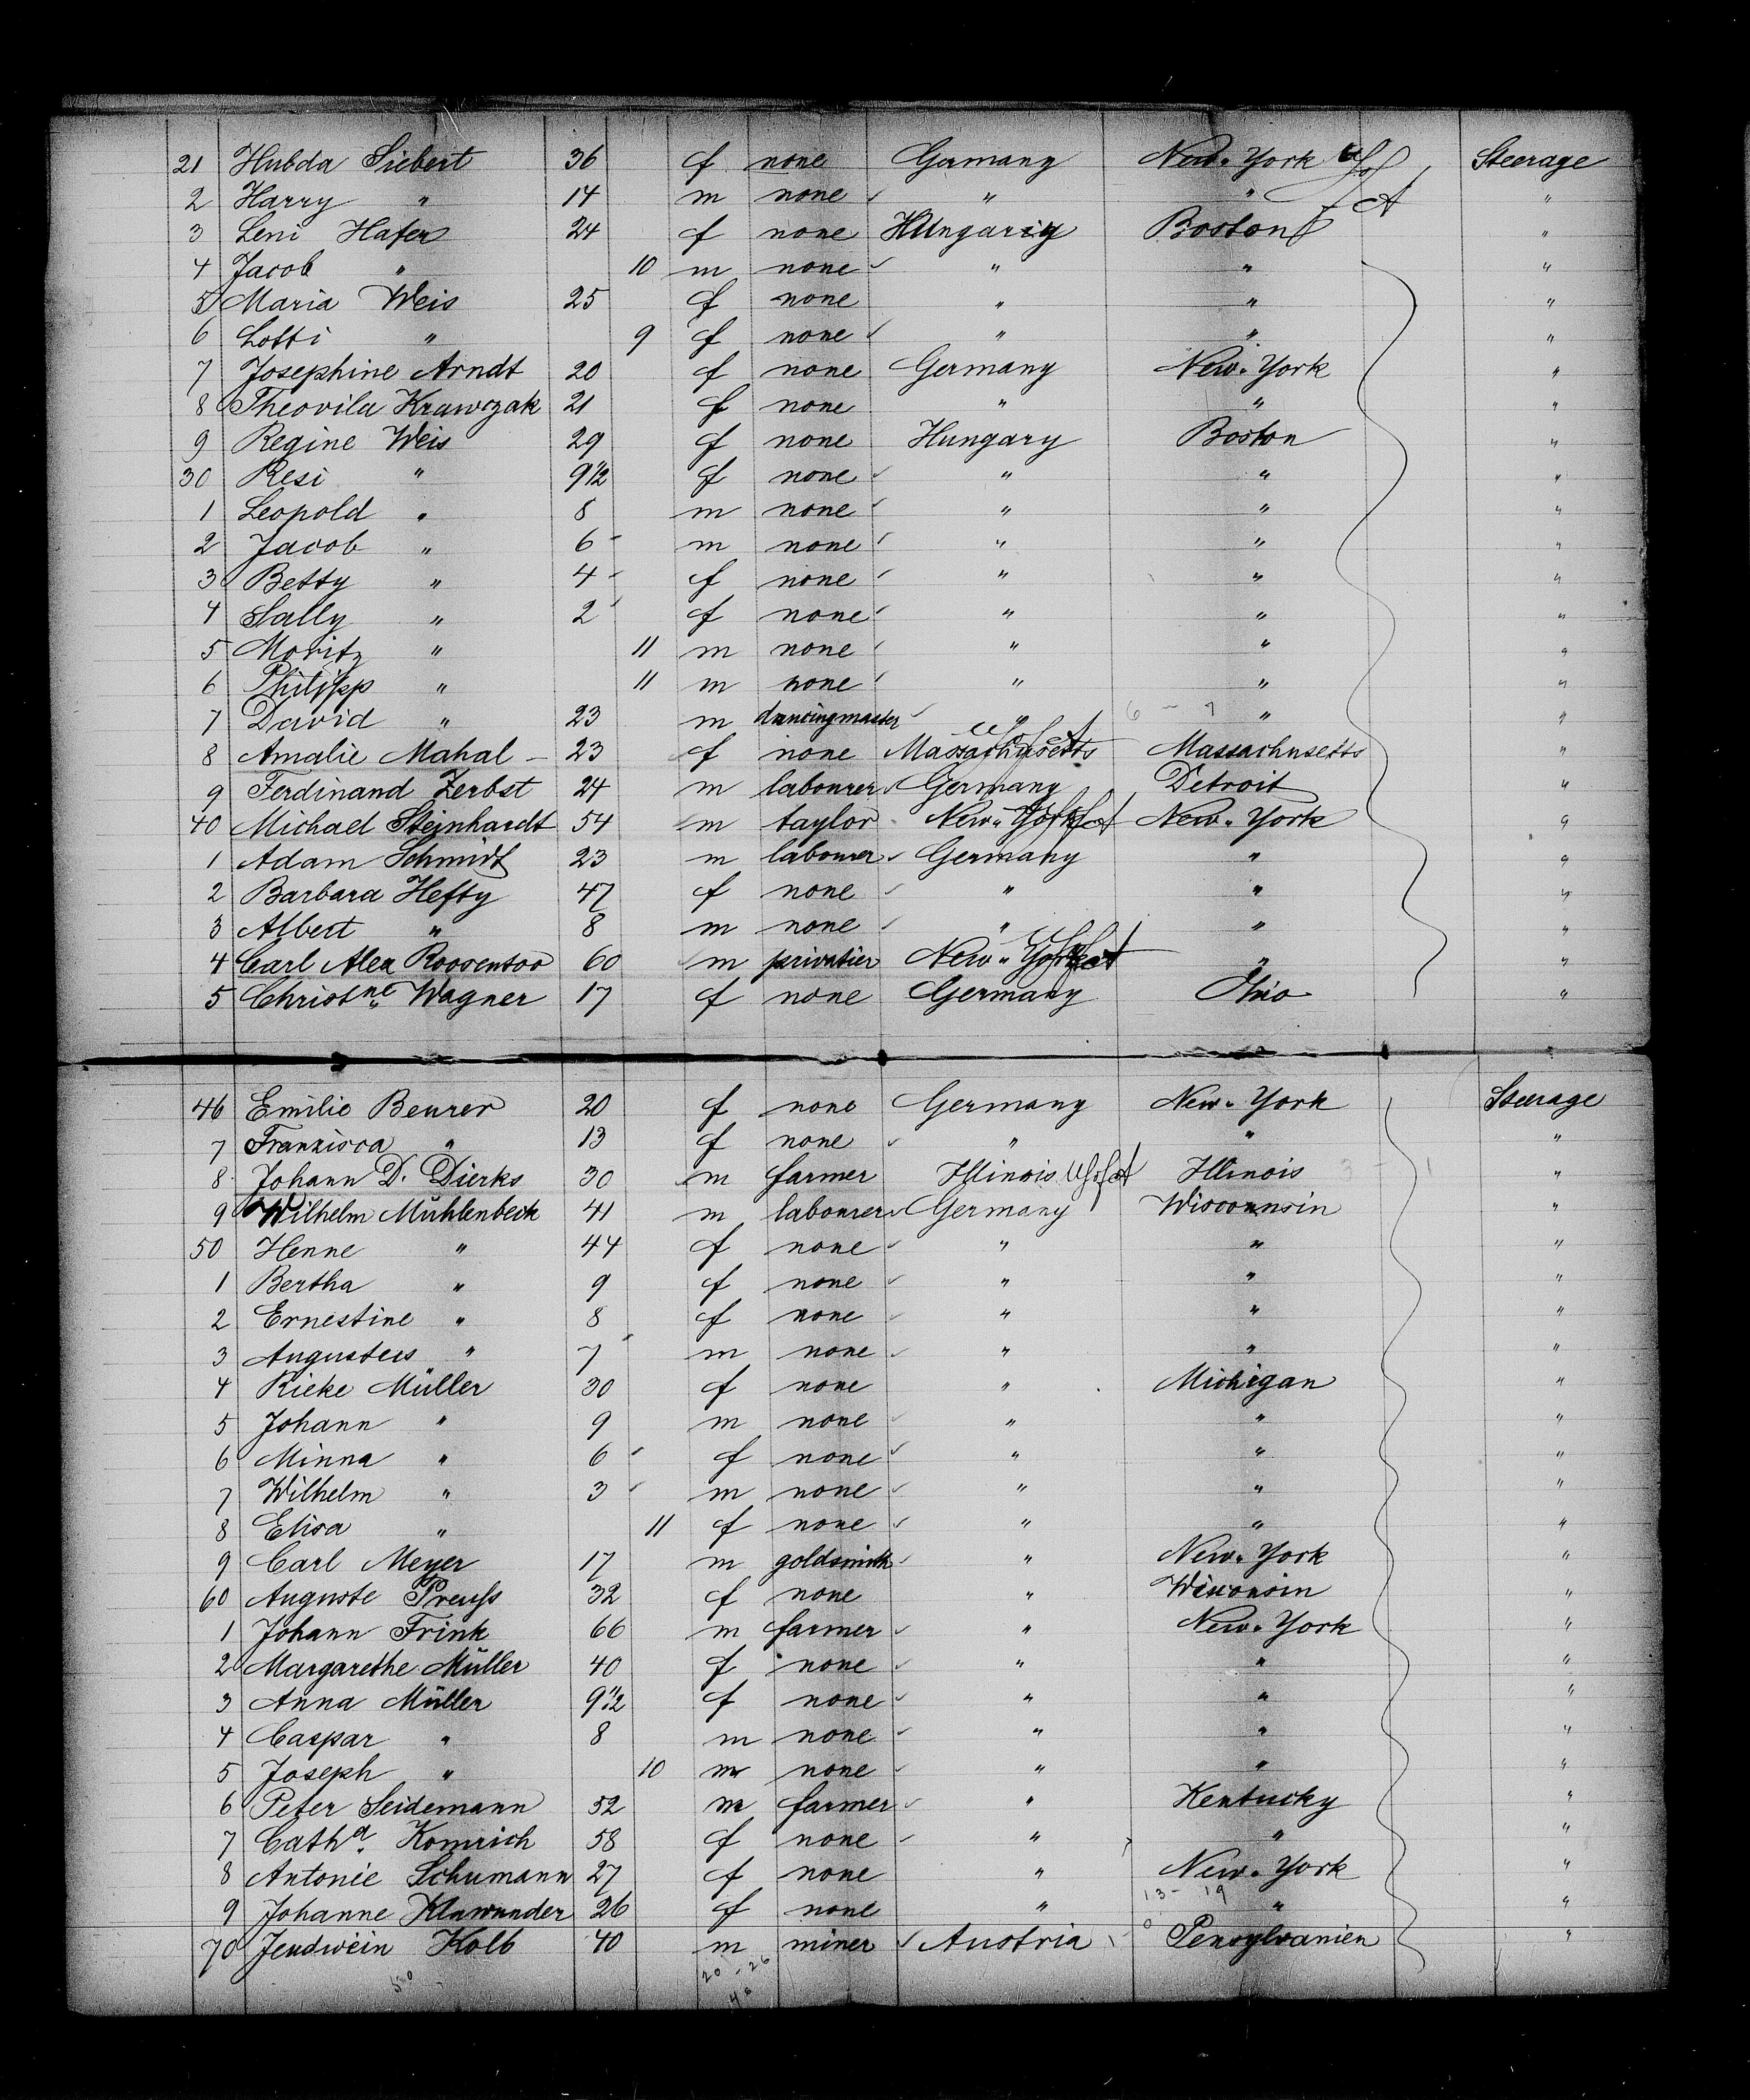 21 Hubda Siebert 36 f none Germany New-York U S of A Steerage
2 Harry " 14 m none " " "
3 Leni Hafer 24 f none Hungary Boston "
4 Jacob " 10 m none " " "
5 Maria Weis 25 f none " " "
6 Lotti " 9 f none " " "
7 Josephine Arndt 20 f none Germany New-York "
8 Theovila Krawczak 21 f none " " "
9 Regine Weis 29 f none Hungary Boston "
30 Resi " 9 1/2 f none " " "
1 Leopold " 8 m none " " "
2 Jacob " 6 m none " " "
3 Betty " 4 f none " " "
4 Sally " 2 f none " " "
5 Moritz " 11 m none " " "
6 Philipp " 11 m none " " "
7 David " 23 m dancingmaster " 6 - 7 " "
8 Amalie Mahal - 23 f none Massachusetts U S of A Massachusetts "
9 Ferdinand Zerbst 24 m labourer Germany Detroit "
40 Michael Steinhardt 54 m taylor New-York New-York "
1 Adam Schmidt 23 m labourer Germany " "
2 Barbara Hefty 47 f none " " "
3 Albert " 8 m none " " "
4 Carl Alex 60 m privatier New-York " "
5 Christne Wagner 17 f none Germany Ohio "
46 Emilie Beurer 20 f none Germany New-York Steerage
7 Franzisca " 13 f none " " "
8 Johann D. Dierks 30 m farmer Illinois U S of A Illinois 3 - 1 "
9 Wilhelm Mühlenbeck 41 m labourer Germany Wisconnsin "
50 Henne " 44 f none " " "
1 Bertha " 9 f none " " "
2 Ernestine " 8 f none " " "
3 Augusteus " 7 m none " " "
4 Rieke Müller 30 f none " Michigan "
5 Johann " 9 m none " " "
6 Minna " 6 f none " " "
7 Wilhelm " 3 m none " " "
8 Elisa " 11 f none " " "
9 Carl Meyer 17 m goldsmith " New-York "
60 Auguste Preuss 32 f none " Wisconsin "
1 Johann Frink 66 m farmer " New-York "
2 Margarethe Müller 40 f none " " "
3 Anna Müller 9 1/2 f none " " "
4 Caspar " 8 m none " " "
5 Joseph " 10 m none " " "
6 Peter Seidemann 52 m farmer " Kentucky "
7 Catha. Komrich 58 f none " " "
8 Antonie Schumann 27 f none " New-York "
9 Johanne Klawunder 26 f none " 13 - 19 " "
70 Jendwein Kolb 40 m miner Austria Pensylvanien "
50 20 - 26